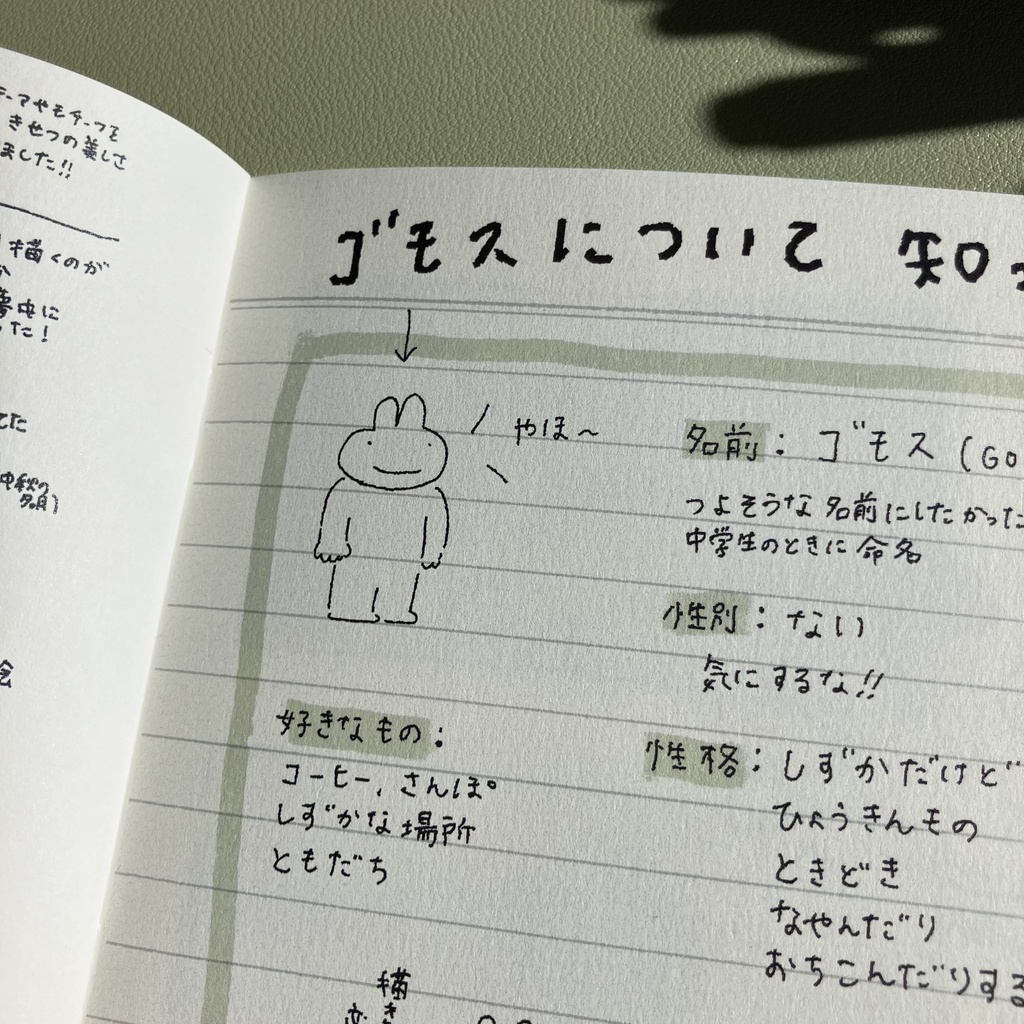 テーマやモチーフを
きせつの美しさ
ました!!
描くのが
か
夢中に
った!
てた
中秋の
名月)
絵
ゴモスについて 知っ
やほ〜
名前: ゴモス (GO
つよそうな名前にしたかった
中学生のときに命名
性別: ない
気にするな!!
好きなもの:
コーヒー、さんぽ。
しずかな場所
ともだち
性格: しずかだけど
ひょうきんもの
ときどき
なやんだり
おちこんだりする
描
き